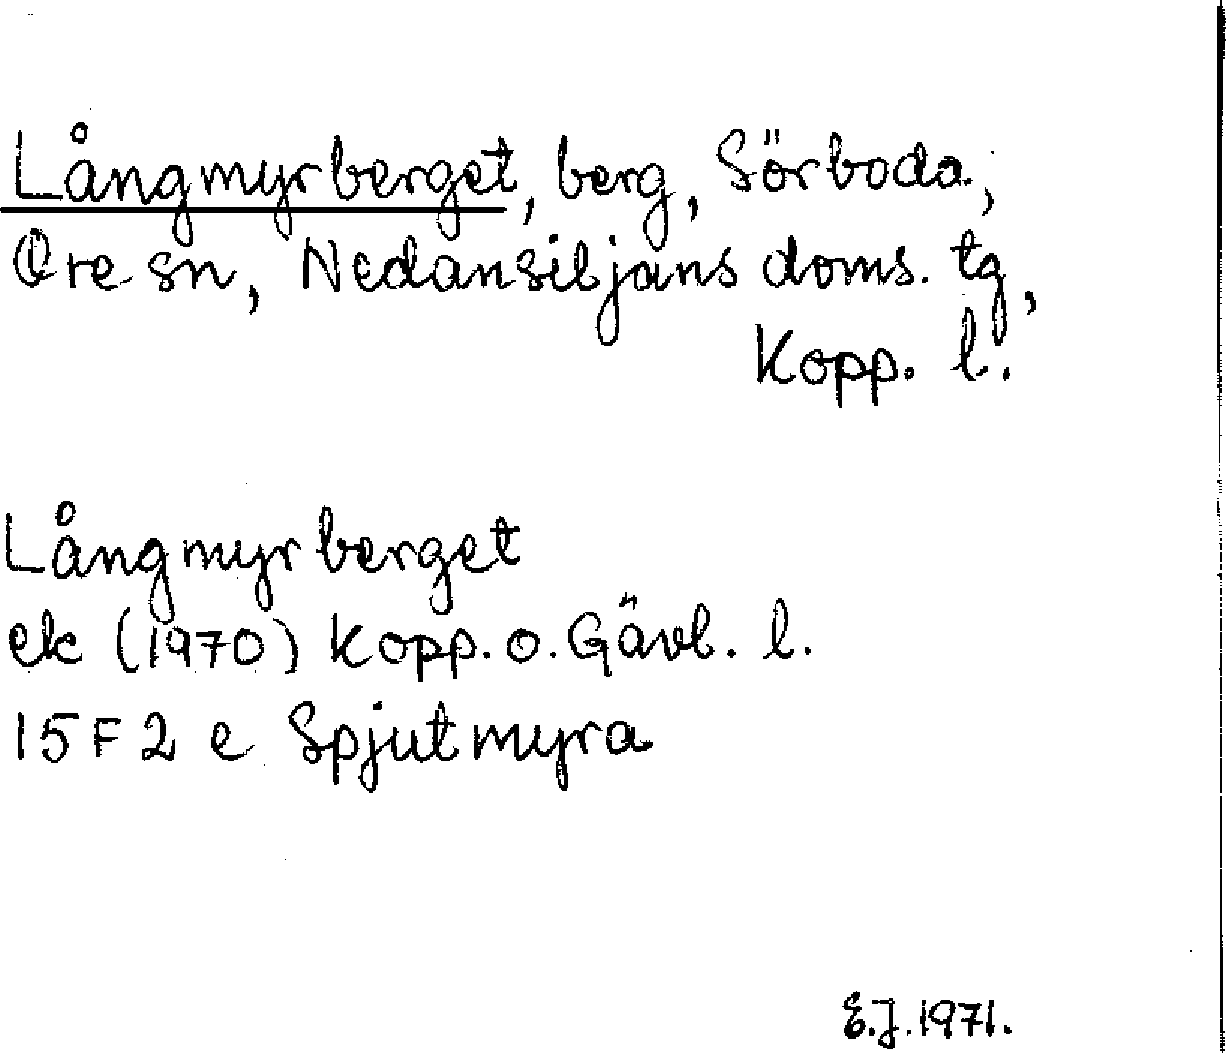 Långmyrberget, berg, Sörboda,
Ore sn, Nedansiljans doms. tg,
Kopp. l.
Långmyrberget
ek (1970) Kopp. o. Gävl. l.
15 F 2 e Spjutmyra
E.J. 1971.